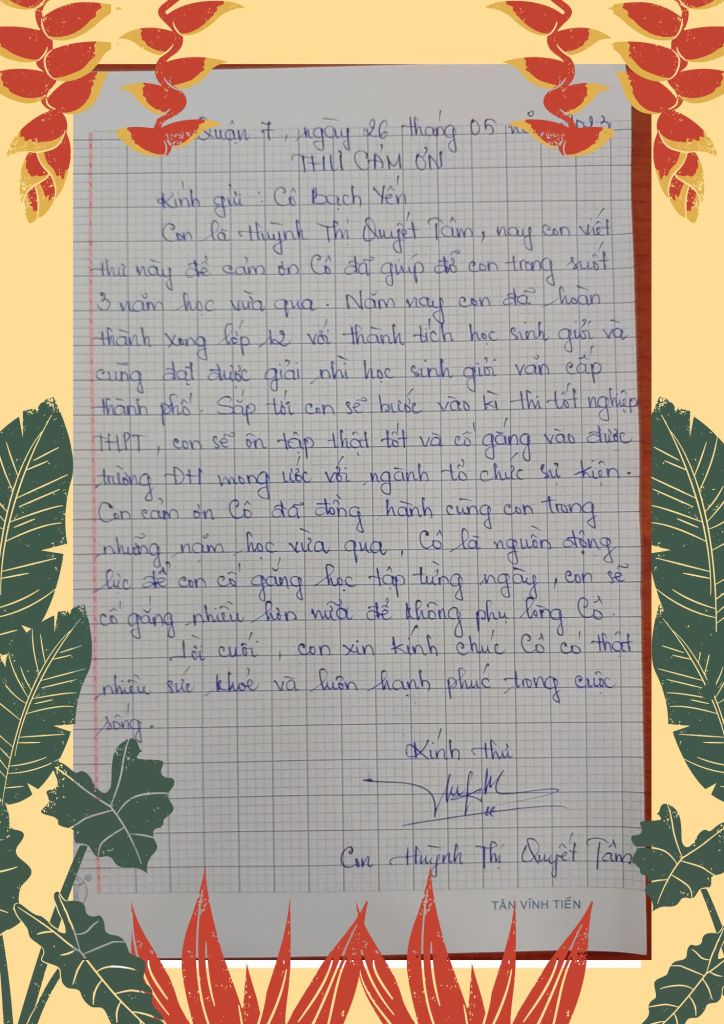 Quận 7, ngày 26 tháng 05
THƯ CẢM ƠN
Kính gửi : Cô Bạch Yến
Con là Huỳnh Thị Quyết Tâm, nay con viết
thư này để cảm ơn Cô đã giúp đỡ con trong suốt
3 năm học vừa qua. Năm nay con đã hoàn
thành xong lớp 12 với thành tích học sinh giỏi và
cũng đạt được giải nhì học sinh giỏi văn cấp
thành phố. Sắp tới con sẽ bước vào kì thi tốt nghiệp
THPT, con sẽ ôn tập thật tốt và cố gắng vào được
trường ĐH mong ước với ngành tổ chức sự kiện.
Con cảm ơn Cô đã đồng hành cùng con trong
những năm học vừa qua, Cô là nguồn động
lực để con cố gắng học tập từng ngày, con sẽ
cố gắng nhiều hơn nữa để không phụ lòng Cô.
Lời cuối, con xin kính chúc Cô có thật
nhiều sức khoẻ và luôn hạnh phúc trong cuộc
sống.
Kính thư
Con Huỳnh Thị Quyết Tâm
TÂN VĨNH TIẾN